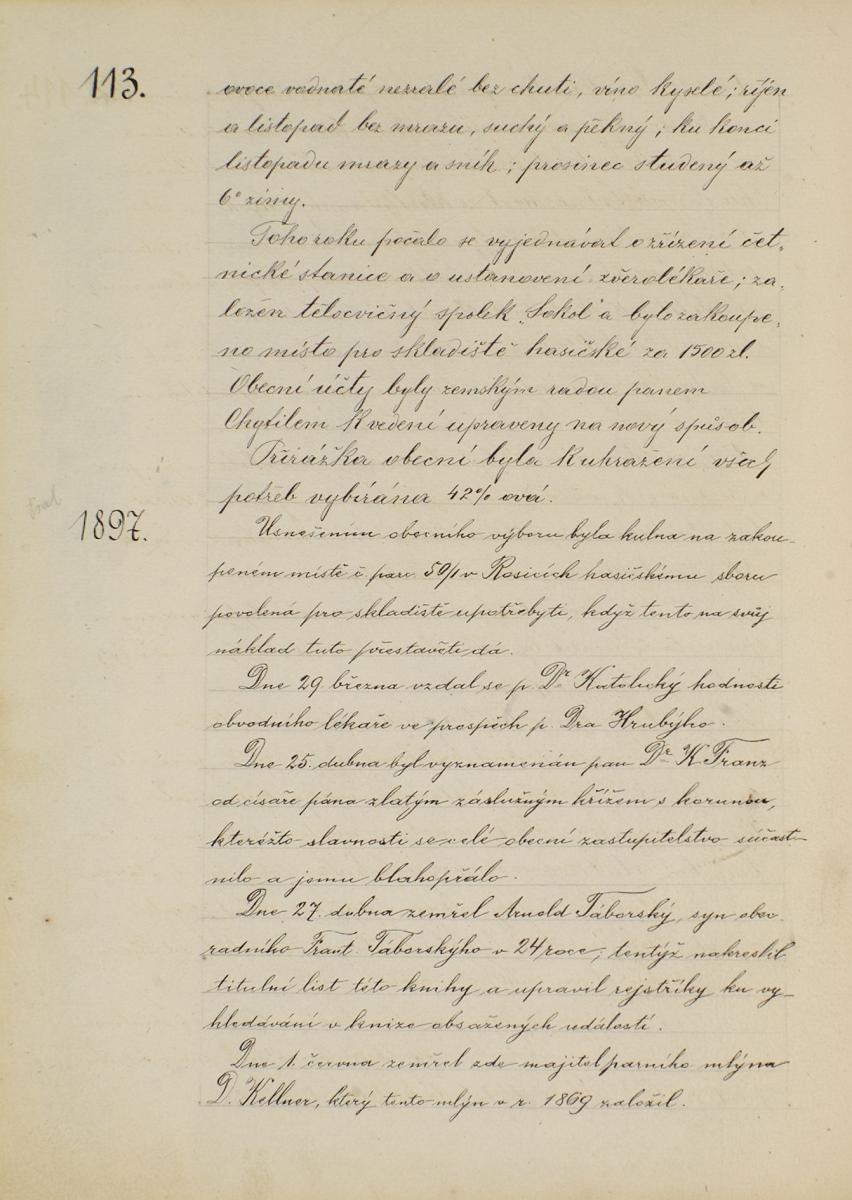 113.
ovoce vodnaté nezralé bez chuti, víno kyselé; říjen
a listopad bez mrazu, suchý a pěkný; ku konci
listopadu mrazy a sníh; prosinec studený až
6° zimy.
Toho roku počalo se vyjednávat o zřízení čet-
nické stanice a o ustanovení zvěrolékaře; za-
ložen tělocvičný spolek „Sokol" a bylo zakoupe-
no místo pro skladiště hasičské za 1500 zl.
Obecní účty byly zemským radou panem
Chytilem k vedení upraveny na nový způsob.
Přirážka obecní byla k uhražení všech
potřeb vybírána 42%
1897.
Usnešením obecního výboru byla kulna na zakou-
peném místě č. parc. 50/1 v Rosicích hasičskému sboru
povolená pro skladiště upotřebyti, když tento na svůj
náklad tuto přestavěti dá.
Dne 29. března vzdal se p. Dr. Katolický hodnosti
obvodního lékaře ve prospěch p. Dra Hrubýho.
Dne 25. dubna byl vyznamenán pan Dr. K. Franz
od císaře pána zlatým záslužným křížem s korunou,
kteréžto slavnosti se celé obecní zastupitelstvo súčast-
nilo a jemu blahopřálo.
Dne 27. dubna zemřel Arnold Táborský, syn obec.
radního Frant. Táborskýho v 24 roce; tentýž nakreslil
titulní list této knihy a upravil rejstříky ku vy-
hledávání v knize obsažených událostí.
Dne 1. června zemřel zde majitel parního mlýna
D. Kellner, který tento mlýn v r. 1869 založil.